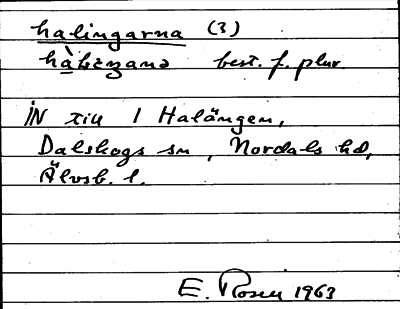 halingarna (3)
best. f. plur.
IN till 1 Halängen,
Dalskogs sn, Nordals hd,
Älvsb. l.
E. Rosén 1963